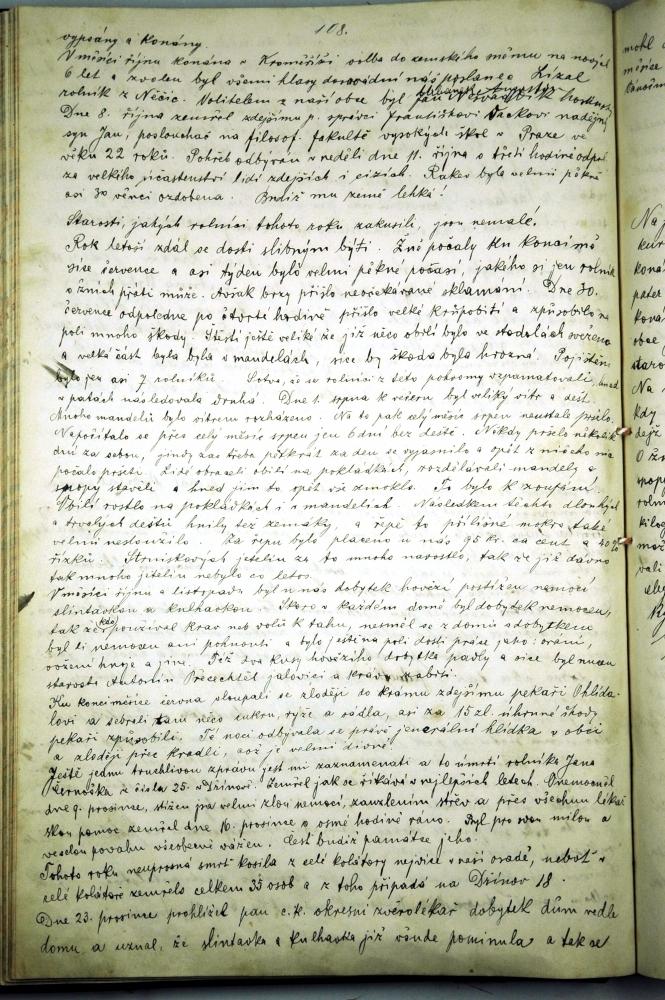 108.
vypsány a konány.
V měsíci říjnu konána v Kroměříži volba do zemského sněmu na nových
6 let a zvolen byl všemi hlasy dosavádní náš poslanec Lízal
rolník z Něčic. Volitelem z naší obce byl Jan
Dne 8. října zemřel zdejšímu p. správci Františkovi Vackovi nadějný
syn Jan, posluchač na filosof. fakultě vysokých škol v Praze ve
věku 22 roků. Pohřeb odbýván v neděli dne 11. října o třetí hodině odpol.
za velkého účastenství lidí zdejších i cizích. Rakev byla velmi pěkně
asi 30 věnci ozdobena. Budiž mu země lehká!
Starosti, jakých rolníci tohoto roku zakusili, jsou nemalé.
Rok letoší zdál se dosti slibným býti. Žně počaly ku konci mě
síce července a asi týden bylo velmi pěkné počasí, jakého si jen rolník
o žních přáti může. Avšak brzy přišlo neočekávané sklamání. Dne 30.
července odpoledne po čtvrté hodině přišlo velké krupobití a způsobilo na
poli mnoho škody. Štěstí ještě veliké že již něco obilí bylo ve stodolách svezeno
a velká část byla v mandelách, sice by škoda byla hrozná. Pojištěni
bylo jen asi 7 rolníků. Sotva, že se rolníci z této pohromy vzpamatovali, hned
v patách následovala druhá. Dne 1. srpna k večeru byl veliký vítr a déšť.
Mnoho mandelů bylo větrem rozházeno. Na to pak celý měsíc srpen neustále pršelo.
Napočítalo se přes celý měsíc srpen jen 6 dní bez deště. Někdy pršelo několik
dní za sebou, jindy zas třeba pětkrát za den se vyjasnilo a opět z ničeho na
počalo pršeti. Lidé obraceli obilí na pokládkách, rozdělávali mandely a
snopy stavěli a hned jim to opět vše zmoklo. To bylo k zoufání.
Obilí rostlo na pokládkách i v mandelích. Následkem těchto dlouhých
a trvalých dešťů hnily též zemáky, a řepě to přílišné mokro také
velmi nesloužilo. Za řepu bylo placeno u nás 95 kr. za cent a 40%
řízků. Strniskových jetelin za to mnoho narostlo, tak že již dávno
tak mnoho jetelin nebylo co letos.
V měsíci říjnu a listopadu byl u nás dobytek hovězí postižen nemocí
slintavkou a kulhavkou. Skoro v každém domě byl dobytek nemocen,
tak že kdo používal krav neb volů k tahu, nesměl se z domu s dobytkem
byl li nemocen ani pohnouti a bylo ještě na poli dosti práce jako: orání,
vožení hnoje a jiná. Též dva kusy hovězího dobytka padly a sice byl nucen
starosta Antonín Přecechtěl jalovici a krávu zabiti.
Ku konci měsíce června vloupali se zloději do krámu zdejšímu pekaři Ohlída-
lovi a sebrali tam něco cukru, rýže a sádla, asi za 15 zl. úhrnné škody
pekaři způsobili. Té noci odbývala se právě jenerální hlídka v obci
a zloději přec kradli, což je velmi divné.
Ještě jednu truchlivou zprávu jest mi zaznamenati a to úmrtí rolníka Jana
z čísla 25. v Dřínově. Zemřel jak se říkává v nejlepších letech. Onemocněl
dne 9. prosince, stížen jsa velmi zlou nemocí, zauzlením střev a přes všechnu lékař
skou pomoc zemřel dne 16. prosince o osmé hodině ráno. Byl pro svou milou a
veselou povahu všeobecně vážen. Čest budiž památce jeho.
Tohoto roku neúprosná smrt kosila z celé kolátory nejvíce v naší osadě, neboť v
celé kolátoře zemřelo celkem 35 osob a z toho připadá na Dřínov 18.
Dne 23. prosince prohlížel pan c. k. okresní zvěrolékař dobytek dům vedle
domu a uznal, že slintavka a kulhavka již všude pominula a tak se